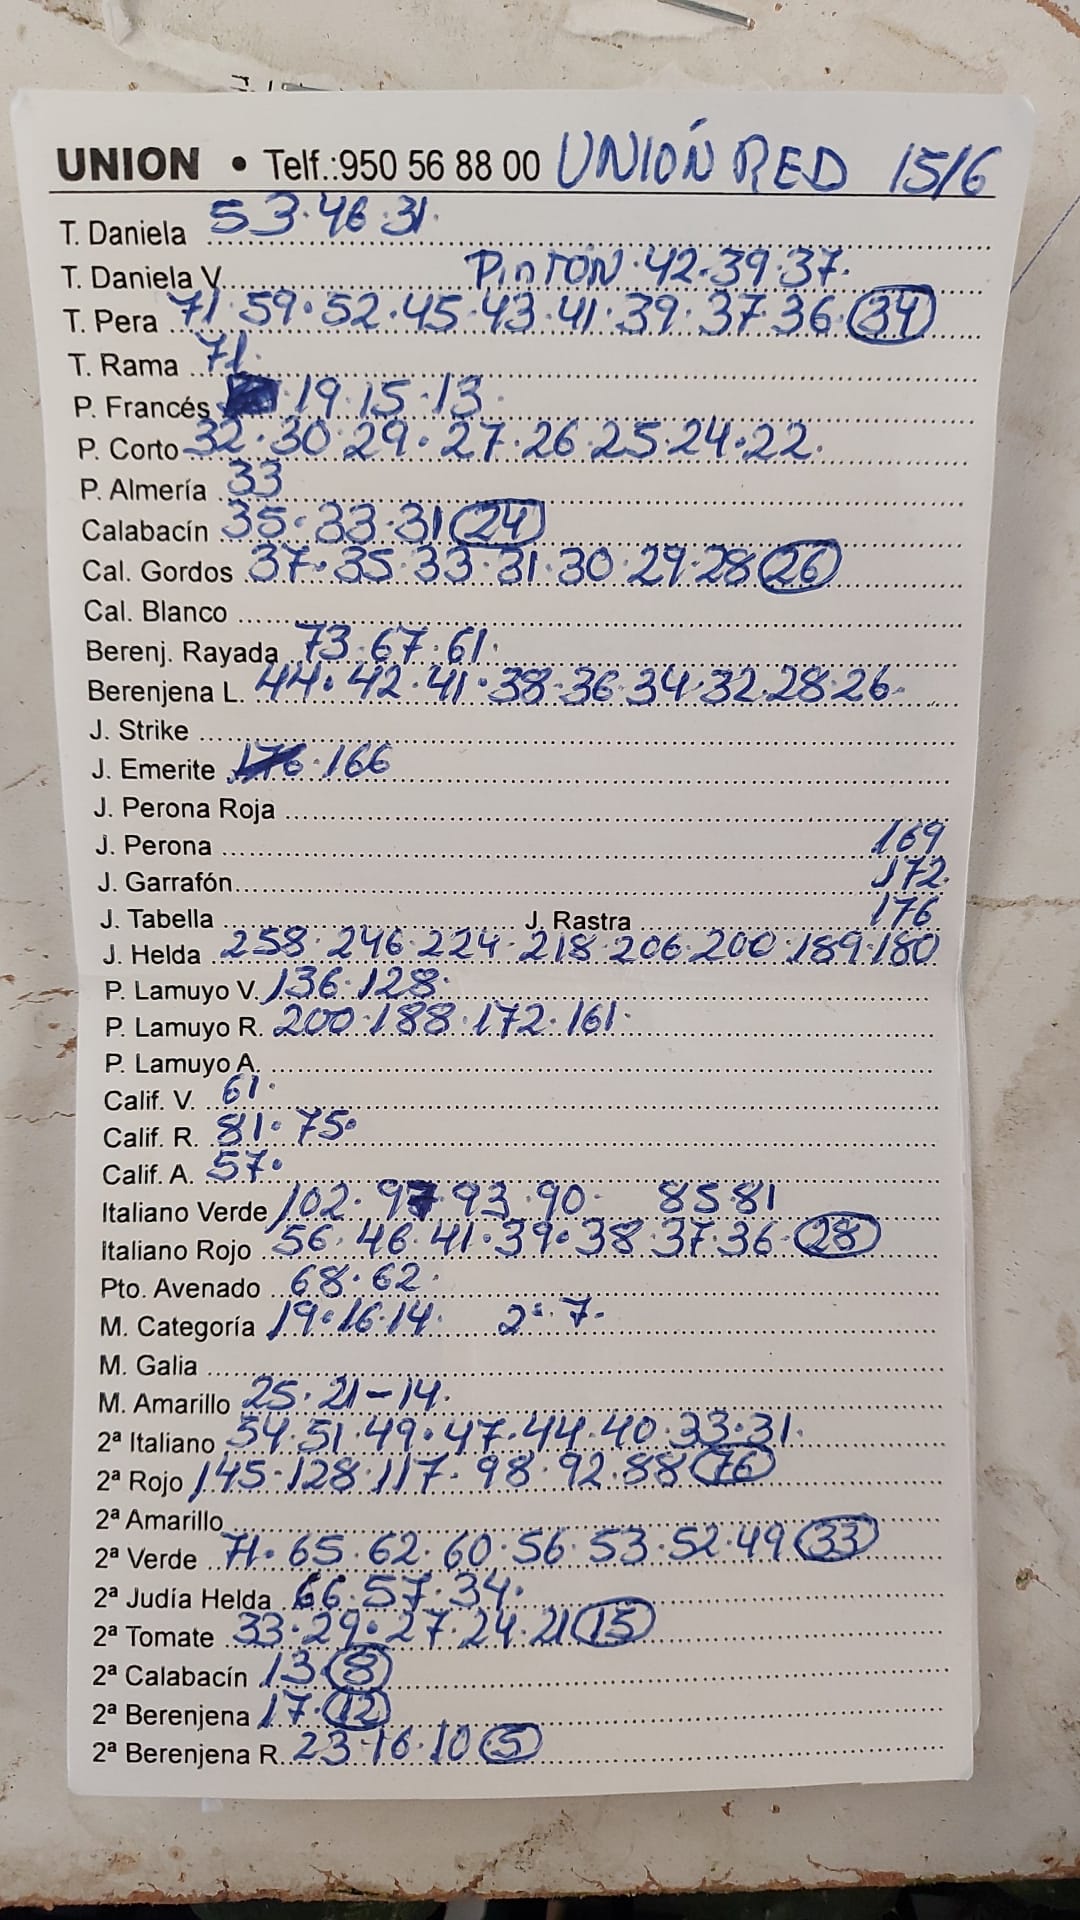 UNION • Telf.:950 56 88 00 UNIÓN RED 15/6
T. Daniela 53.46.31.
T. Daniela V. PinTON.42.39.37.
T. Pera 71.59.52.45.43.41.39.37.36 34
T. Rama 71.
P. Francés .19.15.13.
P. Corto 32.30.29.27.26.25.24.22.
P. Almería 33
Calabacín 35.33.31 24
Cal. Gordos 37.35.33.31.30.29.28 26
Cal. Blanco
Berenj. Rayada 73.67.61.
Berenjena L. 44.42.41.38.36.34.32.28.26.
J. Strike
J. Emerite 176.166
J. Perona Roja
J. Perona 169
J. Garrafón 172.
J. Tabella J. Rastra 176
J. Helda 258.246.224.218.206.200.189.180
P. Lamuyo V. 136.128.
P. Lamuyo R. 200.188.172.161.
P. Lamuyo A.
Calif. V. 61.
Calif. R. 81.75.
Calif. A. 57.
Italiano Verde 102.97 93.90. 85.81
Italiano Rojo 56.46.41.39.38.37.36. 28
Pto. Avenado 68.62.
M. Categoría 19.16.14. 2ª.7.
M. Galia
M. Amarillo 25.21-14.
2ª Italiano 54.51.49.47.44.40.33.31.
2ª Rojo 145.128.117.98.92.88 76
2ª Amarillo
2ª Verde 71.65.62.60.56.53.52.49 33
2ª Judía Helda 66.57.34.
2ª Tomate 33.29.27.24.21 15
2ª Calabacín 13. 8
2ª Berenjena 17. 12
2ª Berenjena R. 23.16.10 5